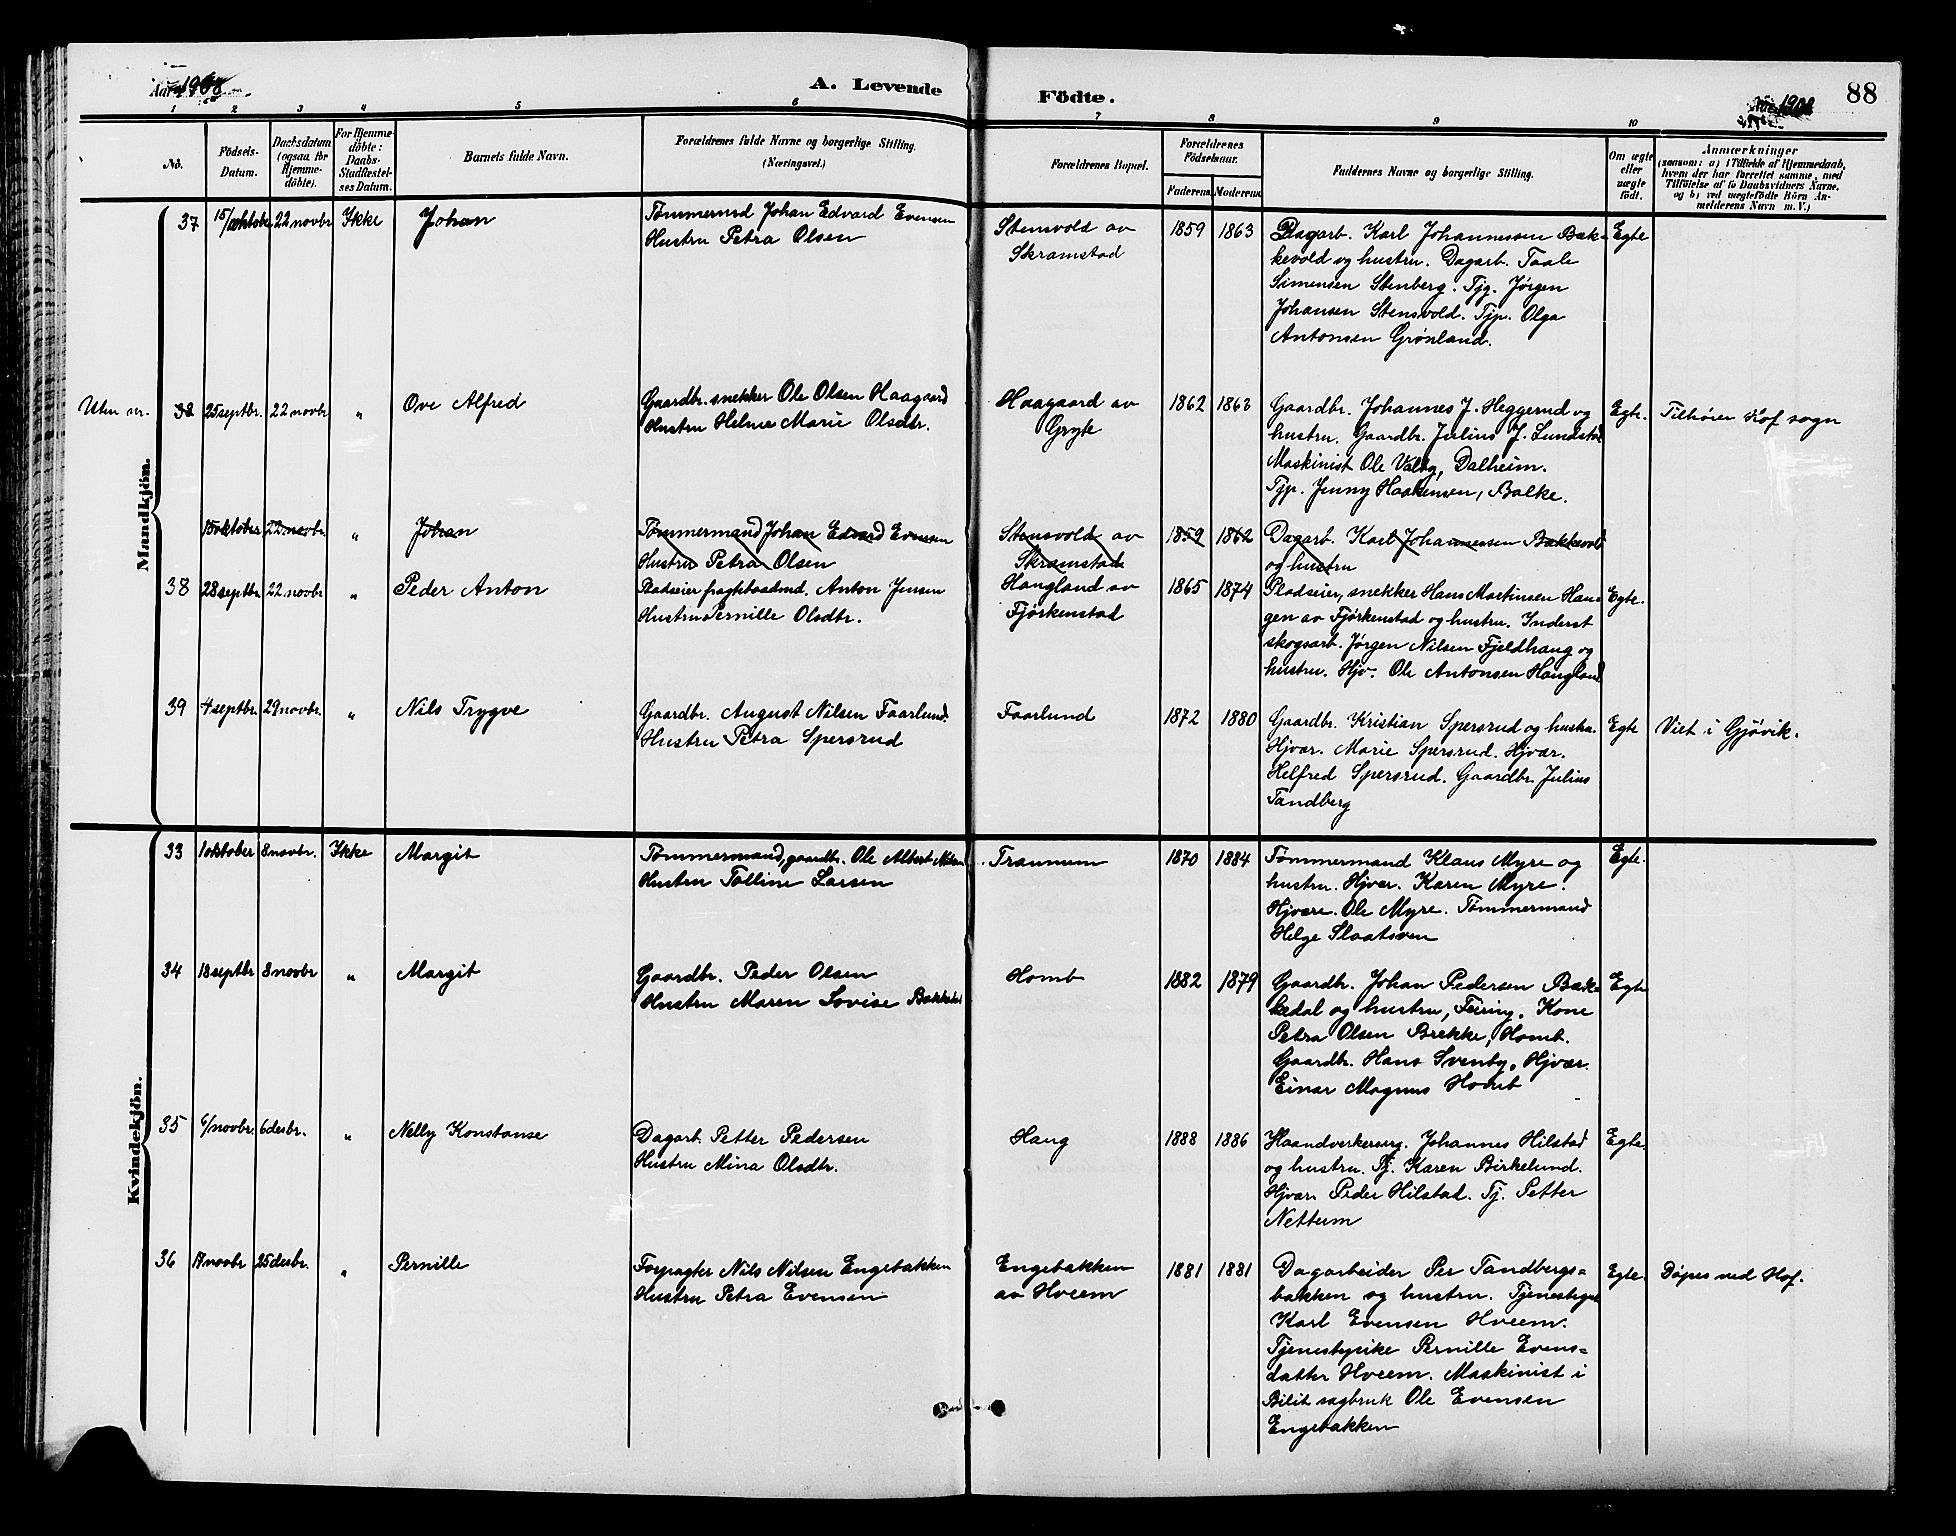 Aar 1908
A. Levende Födte.
1908
88
1 2 3 4 5 6 7 8 9 10
No.
Födsels-Datum.
Daabsdatum (ogsaa for Hjemme-döbte).
For Hjemme-döbte: Daabs-Stadfæstel-ses Datum.
Barnets fulde Navn.
Forældrenes fulde Navne og borgerlige Stilling. (Næringsvei.)
Forældrenes Bopæl.
Forældrenes Födselsaar.
Faderens Moderens
Faddernes Navne og borgerlige Stilling.
Om ægte eller uægte födt.
Anmærkninger
(saasom: a) i Tilfælde af Hjemmedaab,
hvem der har forrettet samme, med
Tilföielse af to Daabsvidners Navne,
og b) ved uægtefödte Börn An-
melderens Navn m. V.)
Mandkjön.
37 15/oktobr 22 novbr Ikke Johan
Tømmermd Johan Edvard Evensen
Hustru Petra Olsen
Stensvold av
Skramstad
1859 1863
Dagarb. Karl Johannessen Bæk-
kevold og hustru. Dagarb. Taale
Simensen Stenberg. Tjg. Jörgen
Johansen Stensvold. Tjp. Olga
Antonsen Grönland.
Egte
Uten nr. 38 25 septbr. 22 novbr " Ove Alfred
Gaardbr. snekker Ole Olsen Haagaard
Hustru Helene Marie Olsdtr.
Haagaard av
Gryte
1862 1863
Gaardbr. Johannes J. Heggerud og
hustru. Gaardbr. Julius J. Lundstad
Maskinist Ole Valby, Dalheim.
Tjp. Jenny Haakensen, Balke.
Egte. Tilhører Hof sogn
15 oktober 22 novbr. " Johan
Tømmermand Johan Edvard Evensen
Hustru Petra Olsen
Stensvold av
Skramstad
1859 1862
Dagarb. Karl Johannessen Bakkevold
og hustru
38 28 septbr 22 novbr " Peder Anton
Pladseier fragtbaadmd. Anton Jensen
Hustru Pernille Olsdtr.
Haugland av
Fjörkenstad
1865 1874
Pladseier, snekker Hans Martinsen Hau-
gen av Fjörkenstad og hustru. Inderst
skogsarb. Jörgen Nilsen Fjeldhaug og
hustru. Hjv. Ole Antonsen Haugland
Egte.
39 4 septbr. 29 novbr. " Nils Trygve
Gaardbr. August Nilsen Faarlund.
Hustru Petra Spersrud
Faarlund
1872 1880
Gaardbr. Kristian Spersrud og hustru.
Hjvær. Marie Spersrud. Hjvær.
Helfred Spersrud. Gaardbr. Julius
Tandberg
Egte Viet i Gjøvik.
Kvindekjön.
33 1 oktober 8 novbr. Ikke Margit
Tømmermand, gaardbr. Ole Albert Nilsen
Hustru Tolline Larsen
Tranum
1870 1884
Tømmermand Klaus Myre og
hustru. Hjvær. Karen Myre.
Hjvære. Ole Myre. Tømmermand
Helge Slaatsven
Egte.
34 18 septbr 8 novbr " Margit
Gaardbr. Peder Olsen
Hustru Maren Lovise Bækkedal
Homb
1882 1879
Gaardbr. Johan Pedersen Bæk-
kedal og hustru, Feiring. Kone
Petra Olsen Brekke, Homb.
Gaardbr. Hans Svenby. Hjvær.
Einar Magnus Homb
Egte
35 6/novbr. 6 desbr. " Nelly Konstanse
Dagarb. Petter Pedersen
Hustru Mina Olsdtr.
Haug
1888 1886
Haandverkersvg. Johannes Hilstad
og hustru. Tj. Karen Birkelund.
Hjvær. Peder Hilstad. Tj. Petter
Nettum
Egte.
36 17 novbr 25 desbr. " Pernille
Forpagter Nils Nilsen Engebakken
Hustru Petra Evensen
Engebakken
av Hveem
1881 1881
Dagarbeider Per Tandbergs-
bakken og hustru. Tjenestegut
Karl Evensen Hveem.
Tjenestepike Pernille Evens-
datter Hveem. Maskinist i
Bilit sagbruk Ole Evensen
Engebakken
Egte. Döpes ved Hof.